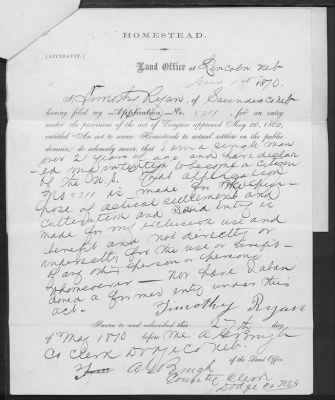 HOMESTEAD.
(AFFIDAVIT.)
Land Office at Lincoln Neb
June 1st 1870.
I, Timothy Ryan, of Saunders Co Neb
having filed my Application No. 5311, for an entry
under the provisions of the act of Congress approved May 20, 1862,
entitled "An act to secure Homesteads to actual settlers on the public
domain," do solemnly swear, that I am a single man
over 21 years of age and have declar
ed my intention to become a citizen
of the U.S. That application
No 5311 is made for the pur
pose of actual settlement and
cultivation and said entry is
made for my exclusive use and
benefit and not directly or
indirectly for the use or benefit
of any other person or persons
whomsoever — nor have I aban
doned a former entry under this
act.
Timothy Ryan
Sworn to and subscribed this 27th day
of May 1870 before me A G Brugh
Co Clerk Dodge Co Neb.
of the Land Office.
A G Brugh
County Clerk
Dodge Co Neb